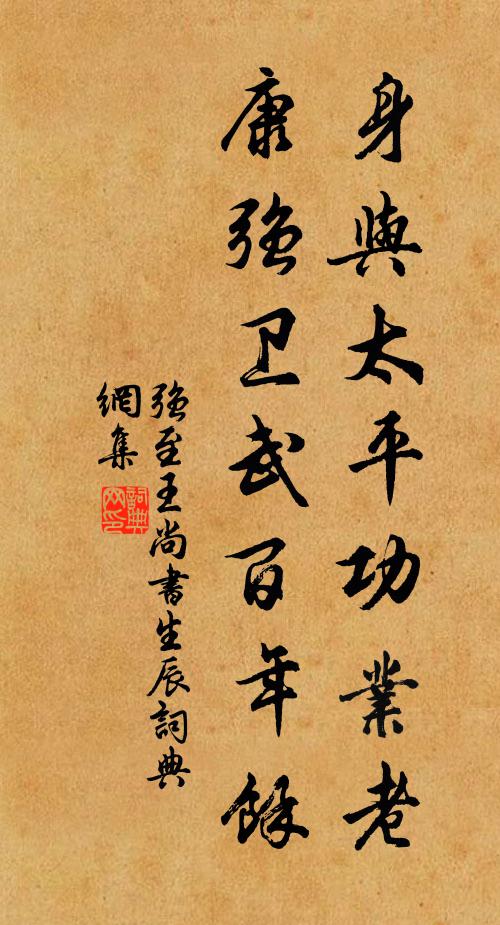 身與太平功業老
康強卫武百年餘
強至王尚書生辰詞典
網集
詞典
网印